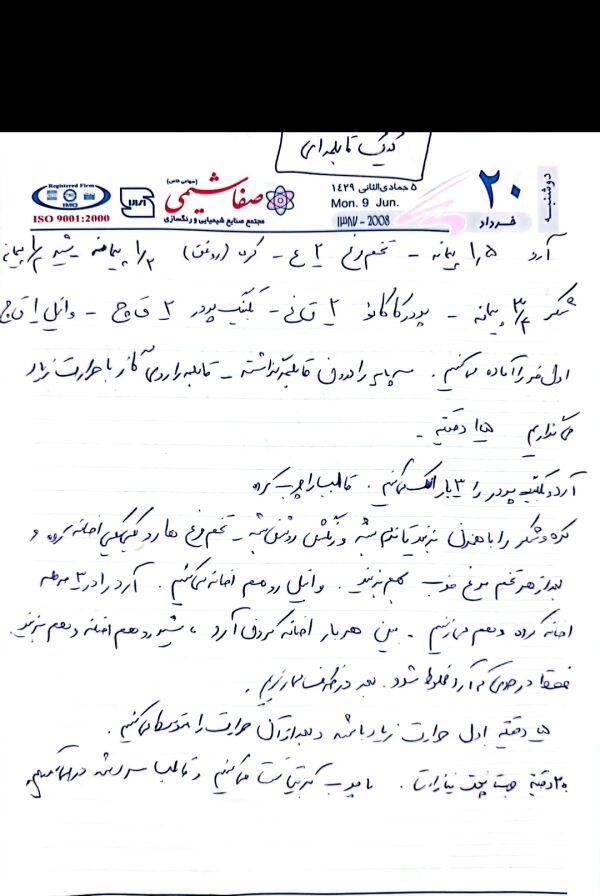 کیک قابلمه ای
دوشنبه
۲۰
خرداد
۵ جمادی‌الثانی ۱۴۲۹
Mon. 9 Jun.
۱۳۸۷ - 2008
(سهامی خاص)
صفا شیمی
مجتمع صنایع شیمیایی و رنگسازی
Registered Firm
IMQ
ISO 9001:2000
آرد ۱٫۵ پیمانه - تخم مرغ ۲ ع - کره (روغن) ۱/۲ پیمانه - شیر ۱/۲ پیمانه
شکر ۳/۴ پیمانه - پودر کاکائو ۲ ق غ - بکینگ پودر ۲ ق چ - وانیل ۱ ق چ
اول فر را آماده می کنیم . سه پایه را درون قابلمه گذاشته - قابلمه را روی گاز با حرارت زیاد
می گذاریم ۱۵ دقیقه -
آرد و بکینگ پودر را ۳ بار الک می کنیم . قالب را چرب کرده
کره و شکر را با همزن بزنید تا نرم شه و رنگش روشن شه - تخم مرغ ها رو یکی یکی اضافه کرده و
بعد از هر تخم مرغ خوب بهم بزنید . وانیل رو هم اضافه می کنیم . آرد را در ۳ مرحله
اضافه کرده و هم می زنیم - بین هر بار اضافه کردن آرد ، شیر رو هم اضافه و هم بزنید
فقط در حدی که آرد مخلوط شود . بعد در ظرف می ریزیم .
۱۵ دقیقه اول حرارت زیاد باشه و بعد از آن حرارت را متوسط می کنیم .
۲۰ دقیقه جهت پخت نیاز است . با چوب کبریت تست می کنیم و قالب